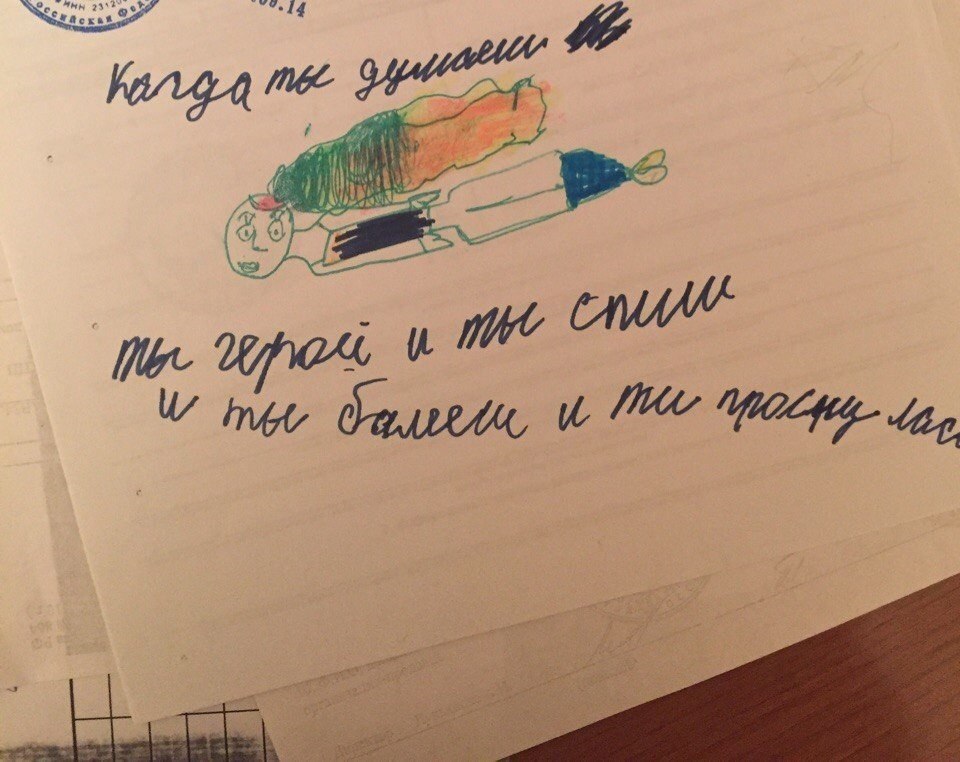 ИНН 23120
оссийская Фед
.09.14
Когда ты думаеш
ты герой и ты спиш
и ты балееш и ти проснулас